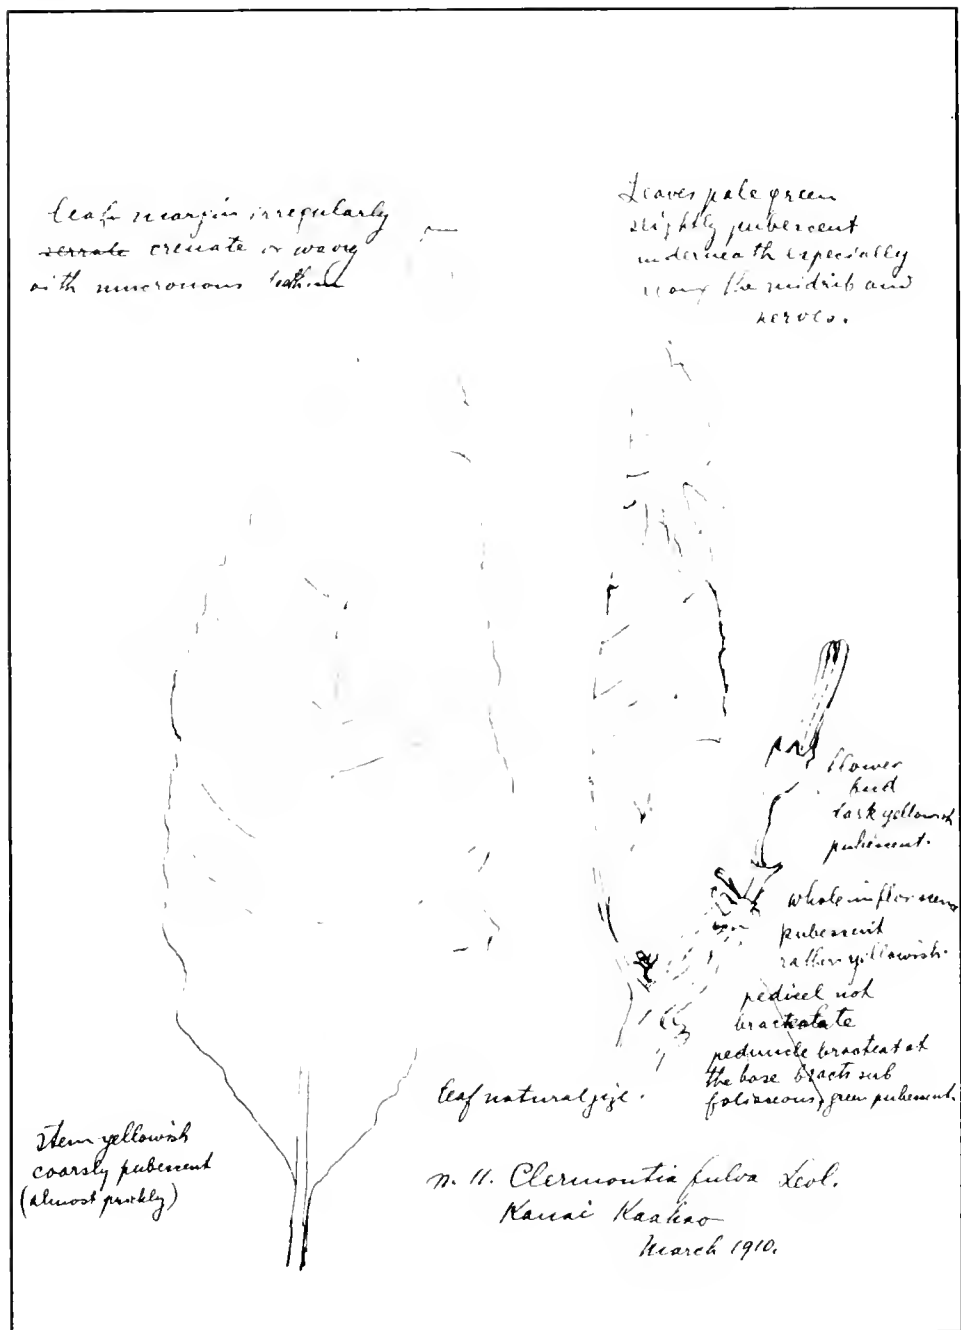 leaf margin irregularly
serrate crenate or wavy
with mucronous
Leaves pale green
slightly pubescent
underneath especially
along the midrib and
nerves.
flower
bud
dark yellowish
pubescent.
whole inflorescence
pubescent
rather yellowish.
pedicel not
bracteolate
peduncle bracteat at
the base bracts sub
foliaceous, green pubescent.
leaf natural size.
stem yellowish
coarsly pubescent
(almost prickly)
n. 11. Clermontia fulva Levl.
Kauai
March 1910.